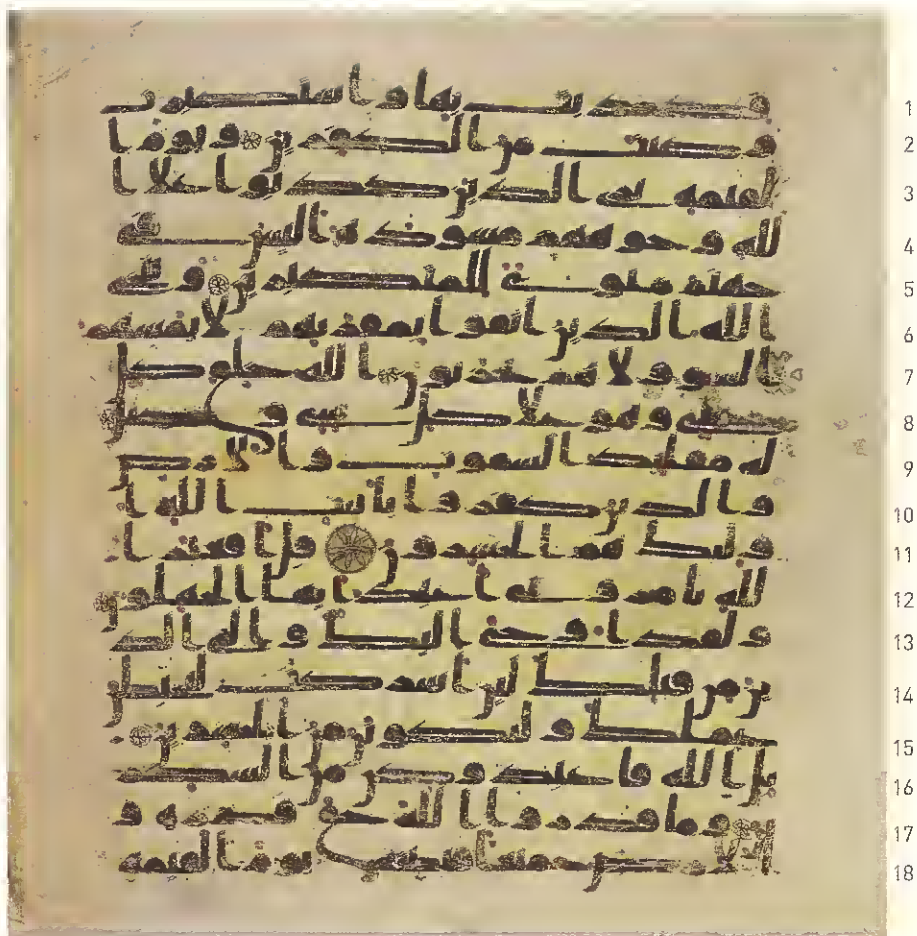 فكذبت بها واستكبرت 1
وكنت من الكفرين ويوم ا 2
لقيمة ترى الذين كذبوا على ا 3
لله وجوههم مسودة اليس في 4
جهنم مثوى للمتكبرين وينجي 5
الله الذين اتقوا بمفازتهم لا يمسهم 6
السوء ولا هم يحزنون الله خلق كل 7
شيء وهو على كل شيء وكيل 8
له مقليد السموت والارض 9
والذين كفروا بايت الله ا 10
ولئك هم الخسرون قل افغير ا 11
لله تامروني اعبد ايها الجهلون 12
ولقد اوحي اليك والى الذ 13
ين من قبلك لئن اشركت ليحبطن 14
عملك ولتكونن من الخسرين 15
بل الله فاعبد وكن من الشكر 16
ين وما قدروا الله حق قدره و 17
الارض جميعا قبضته يوم القيمة 18